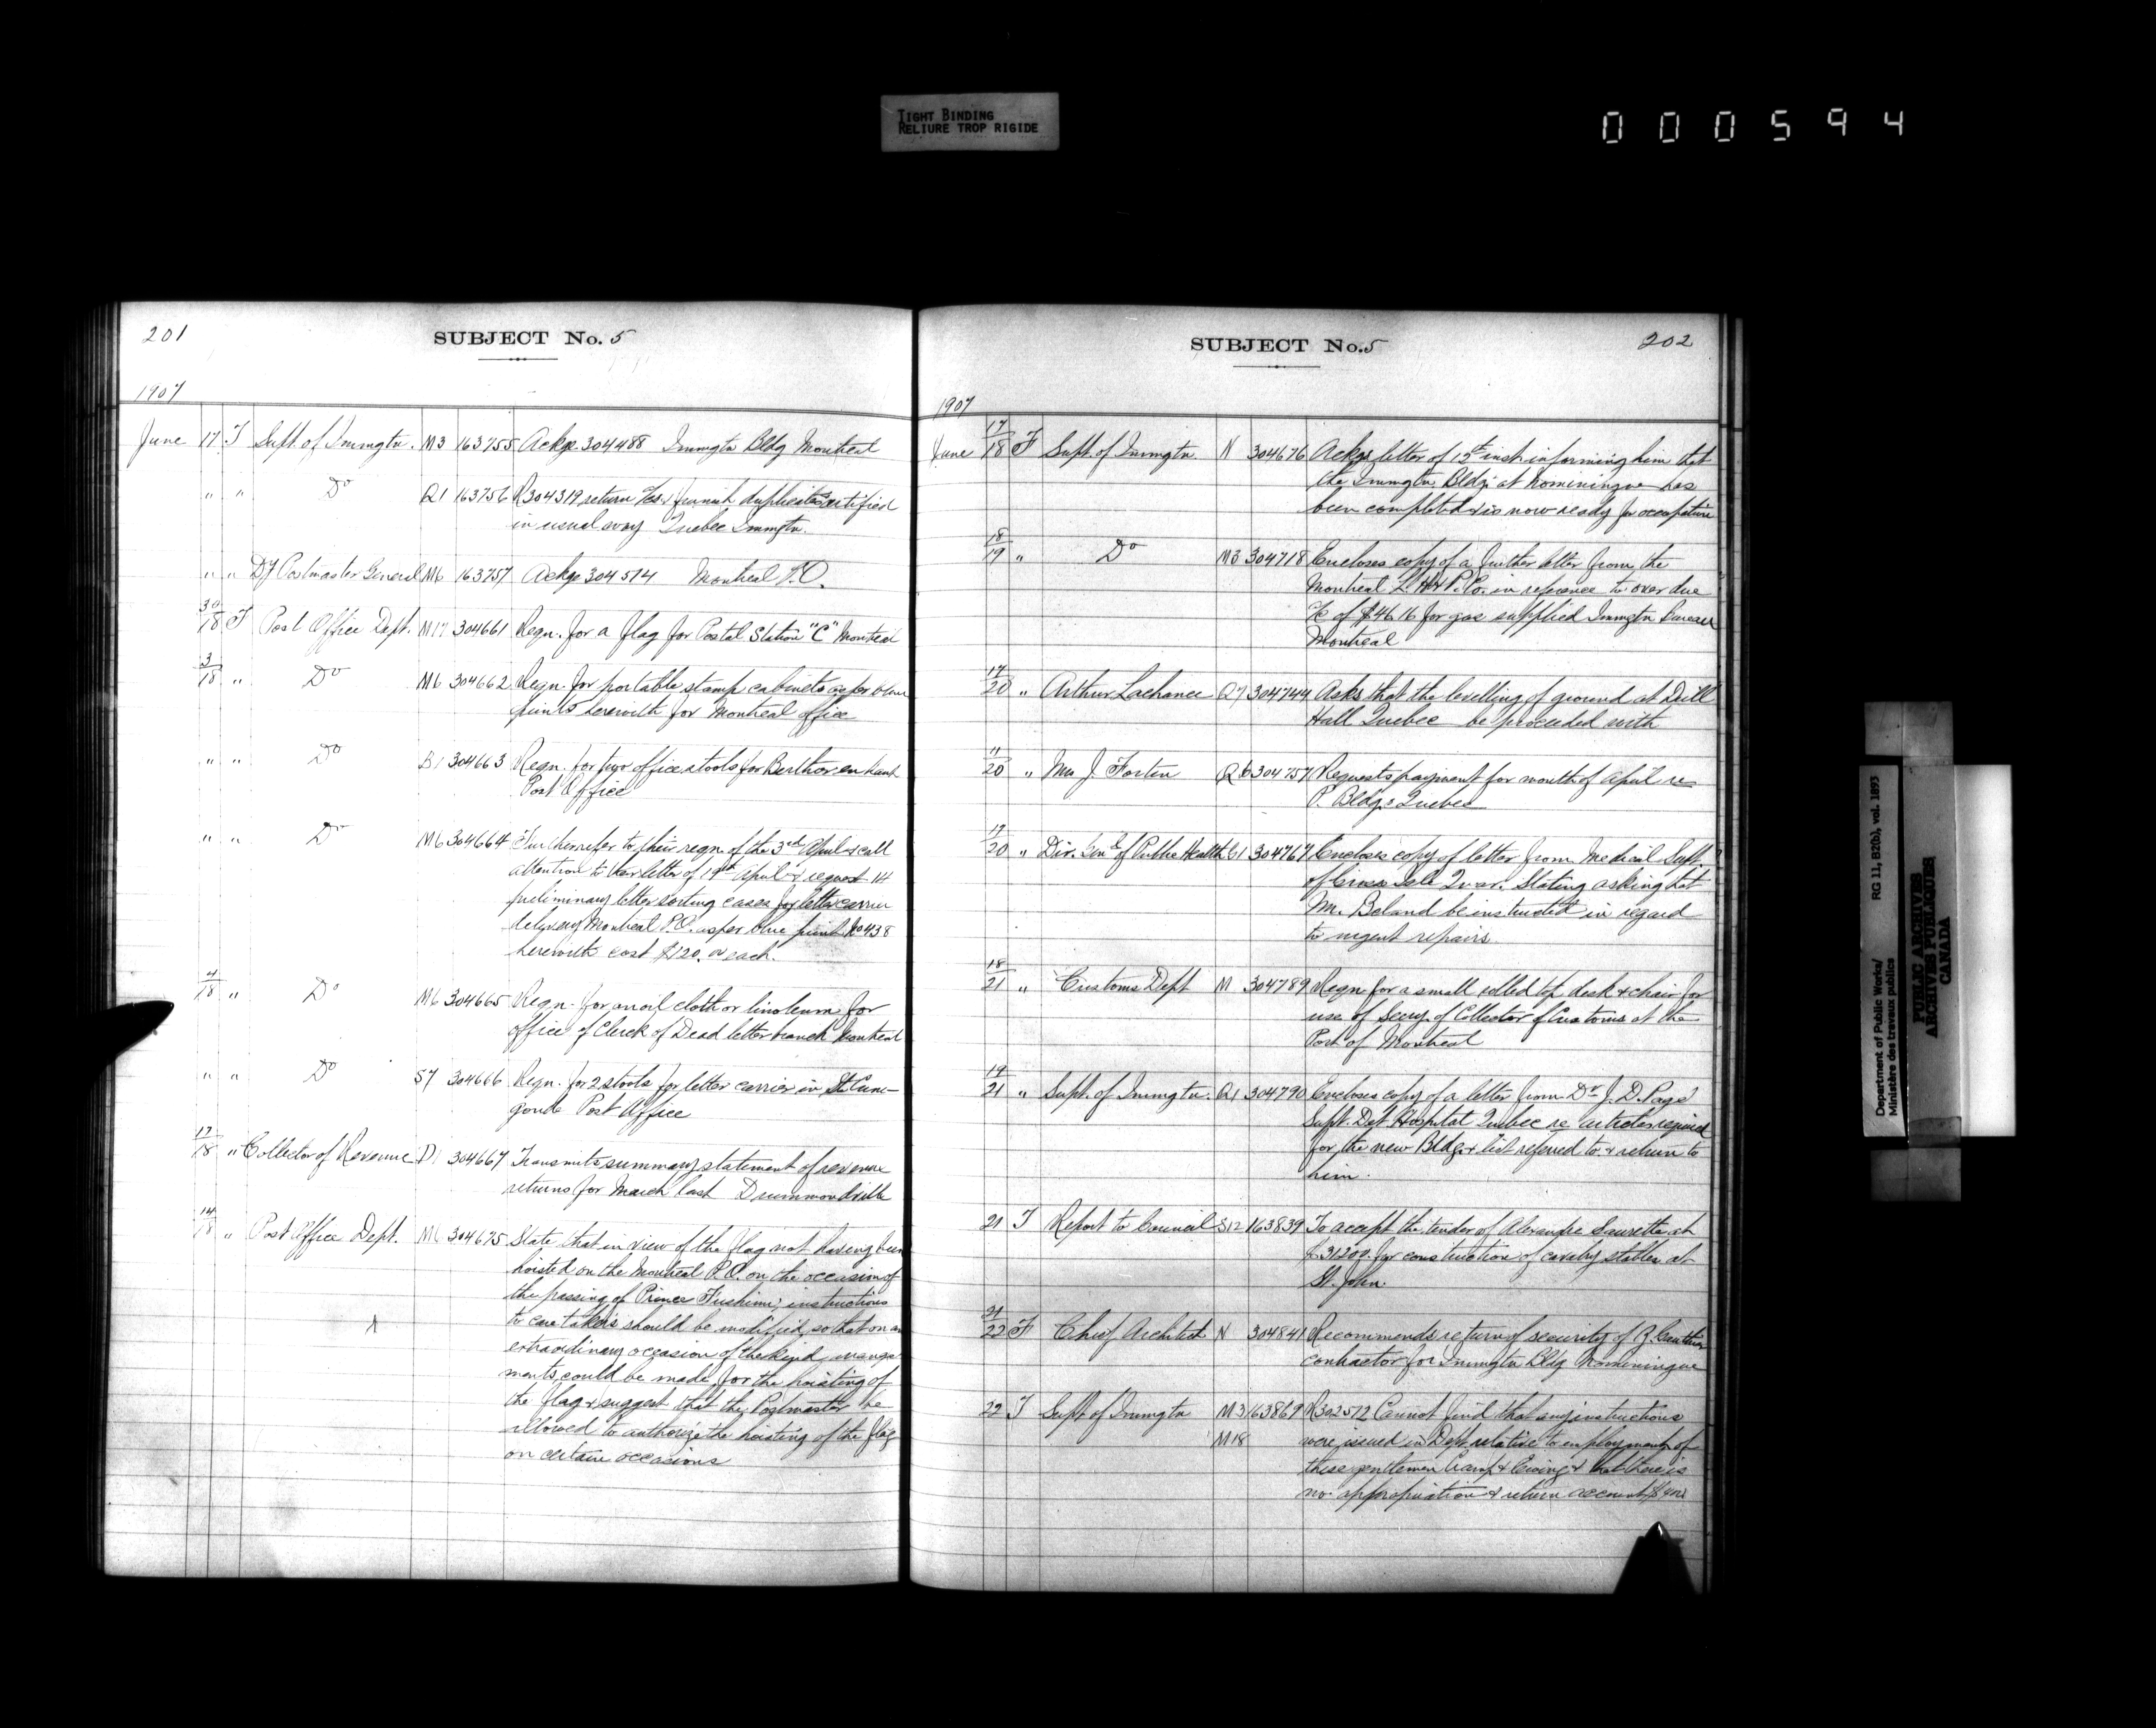 TIGHT BINDING
RELIURE TROP RIGIDE
000594
201
SUBJECT No. 5
1907
June 17 T Supt. of Immgtn. M3 163755 Ackge 304488 Immgtn Bldg Montreal
" " Do Q1 163756 R304319, return & furnish duplicates certified
in usual way Quebec Immgtn.
" " Dy Postmaster General M6 163757 Ackge 304514 Montreal P.O.
30/18 F Post Office Dept. M17 304661 Reqn. for a flag for Postal Station "C" Montreal
3/18 " Do M6 304662 Reqn. for portable stamp cabinets as per blue
prints herewith for Montreal office
" " Do B1 304663 Reqn. for two office stools for Berthier en haut
Post Office
" " Do M6 304664 Further refer to their reqn. of the 3rd April & call
attention to their letter of 19th April & request 14
preliminary letter sorting cases for letter carrier
delivery Montreal P.O. as per blue print No 438
herewith cost $120.00 each.
4/18 " Do M6 304665 Reqn. for an oil cloth or linoleum for
office of Clerk of Dead letter branch Montreal
" " Do S7 304666 Reqn. for 2 stools for letter carrier in St. Cune-
gonde Post Office
17/18 " Collector of Revenue D1 304667 Transmits summary statement of revenue
returns for March last Drummondville
14/18 " Post Office Dept. M6 304675 State that in view of the flag not having been
hoisted on the Montreal P.O. on the occasion of
the passing of Prince Fushimi; instructions
to caretakers should be modified, so that on an
extraordinary occasion of the kind, arrange-
ments could be made for the hoisting of
the flag & suggest that the Postmaster be
allowed to authorize the hoisting of the flag
on certain occasions
SUBJECT No. 5
202
1907
June 17/18 F Supt. of Immgtn. N 304676 Ackgs letter of 15th inst. informing him that
the Immgtn. Bldg. at Nominingue has
been completed & is now ready for occupation
18/19 " Do M3 304718 Encloses copy of a further letter from the
Montreal L. H & P. Co. in reference to over due
a/c of $46.16 for gas supplied Immgtn Bureau
Montreal
17/20 " Arthur Lachance Q7 304744 Asks that the levelling of ground at Drill
Hall Quebec be proceeded with
11/20 " Mrs J. Fortin Q6 304757 Requests payment for month of April re
P. Bldgs Quebec
19/20 " Dir. Genl of Public Health G1 304767 Encloses copy of letter from Medical Supt.
of Grosse Isle Quar. Stating asking that
Mr. Beland be instructed in regard
to urgent repairs.
18/21 " Customs Dept M 304789 Reqn for a small rolled top desk & chair for
use of Secy. of Collector of Customs at the
Port of Montreal
19/21 " Supt. of Immgtn. Q1 304790 Encloses copy of a letter from Dr J. D. Page
Supt. Det. Hospital Quebec re articles required
for the new Bldg & list referred to & return to
him.
21 T Report to Council S12 163839 To accept the tender of Alexandre Saurette at
$31200. for construction of cavalry stables at
St. John.
21/22 F Chief Architect N 304841 Recommends return of security of Z. Gauthier
contractor for Immgtn Bldg Nominingue
22 T Supt of Immgtn M3 163869 R302572 Cannot find that any instructions
M18 were issued in Dept. relative to employment of
these gentlemen & Ewing & that there is
no appropriation & return account
Department of Public Works/
Ministère des travaux publics
RG 11, B2(b), vol. 1893
PUBLIC ARCHIVES
ARCHIVES PUBLIQUES
CANADA